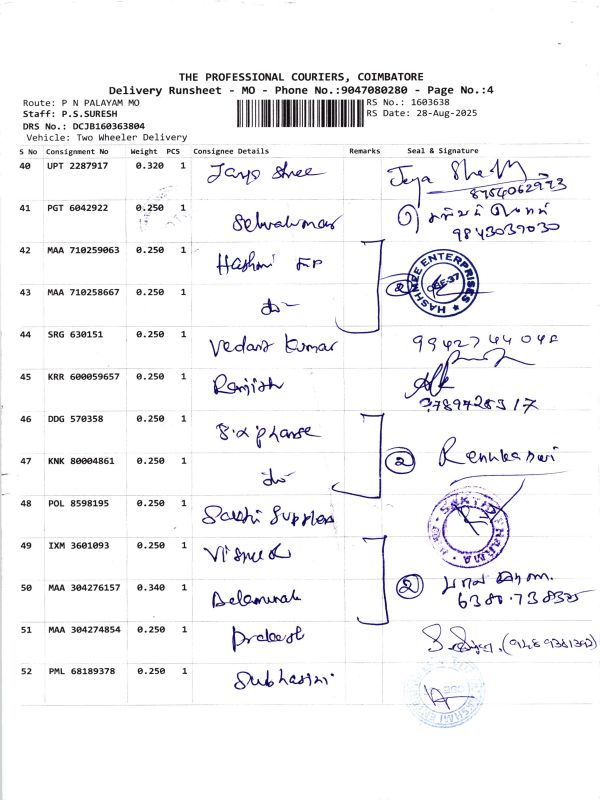 THE PROFESSIONAL COURIERS, COIMBATORE
Delivery Runsheet - MO - Phone No.:9047080280 - Page No.:4
Route: P N PALAYAM MO
RS No.: 1603638
Staff: P.S.SURESH
RS Date: 28-Aug-2025
DRS No.: DCJB160363804
Vehicle: Two Wheeler Delivery
S No Consignment No Weight PCS Consignee Details Remarks Seal & Signature
40 UPT 2287917 0.320 1 Jaya Shree
8754062973
41 PGT 6042922 0.250 1 Selvakumar
9843039030
42 MAA 710259063 0.250 1 Hashmi EP
43 MAA 710258667 0.250 1 do- 2 HASHMEE ENTERPRISES CBE-37
44 SRG 630151 0.250 1 Vedant Kumar
45 KRR 600059657 0.250 1 Ranjith
46 DDG 570358 0.250 1
47 KNK 80004861 0.250 1 do- 2 Renukadevi
48 POL 8598195 0.250 1 Sakthi Suppliers
49 IXM 3601093 0.250 1
50 MAA 304276157 0.340 1 2
51 MAA 304274854 0.250 1 Prakash
52 PML 68189378 0.250 1 Subhasini